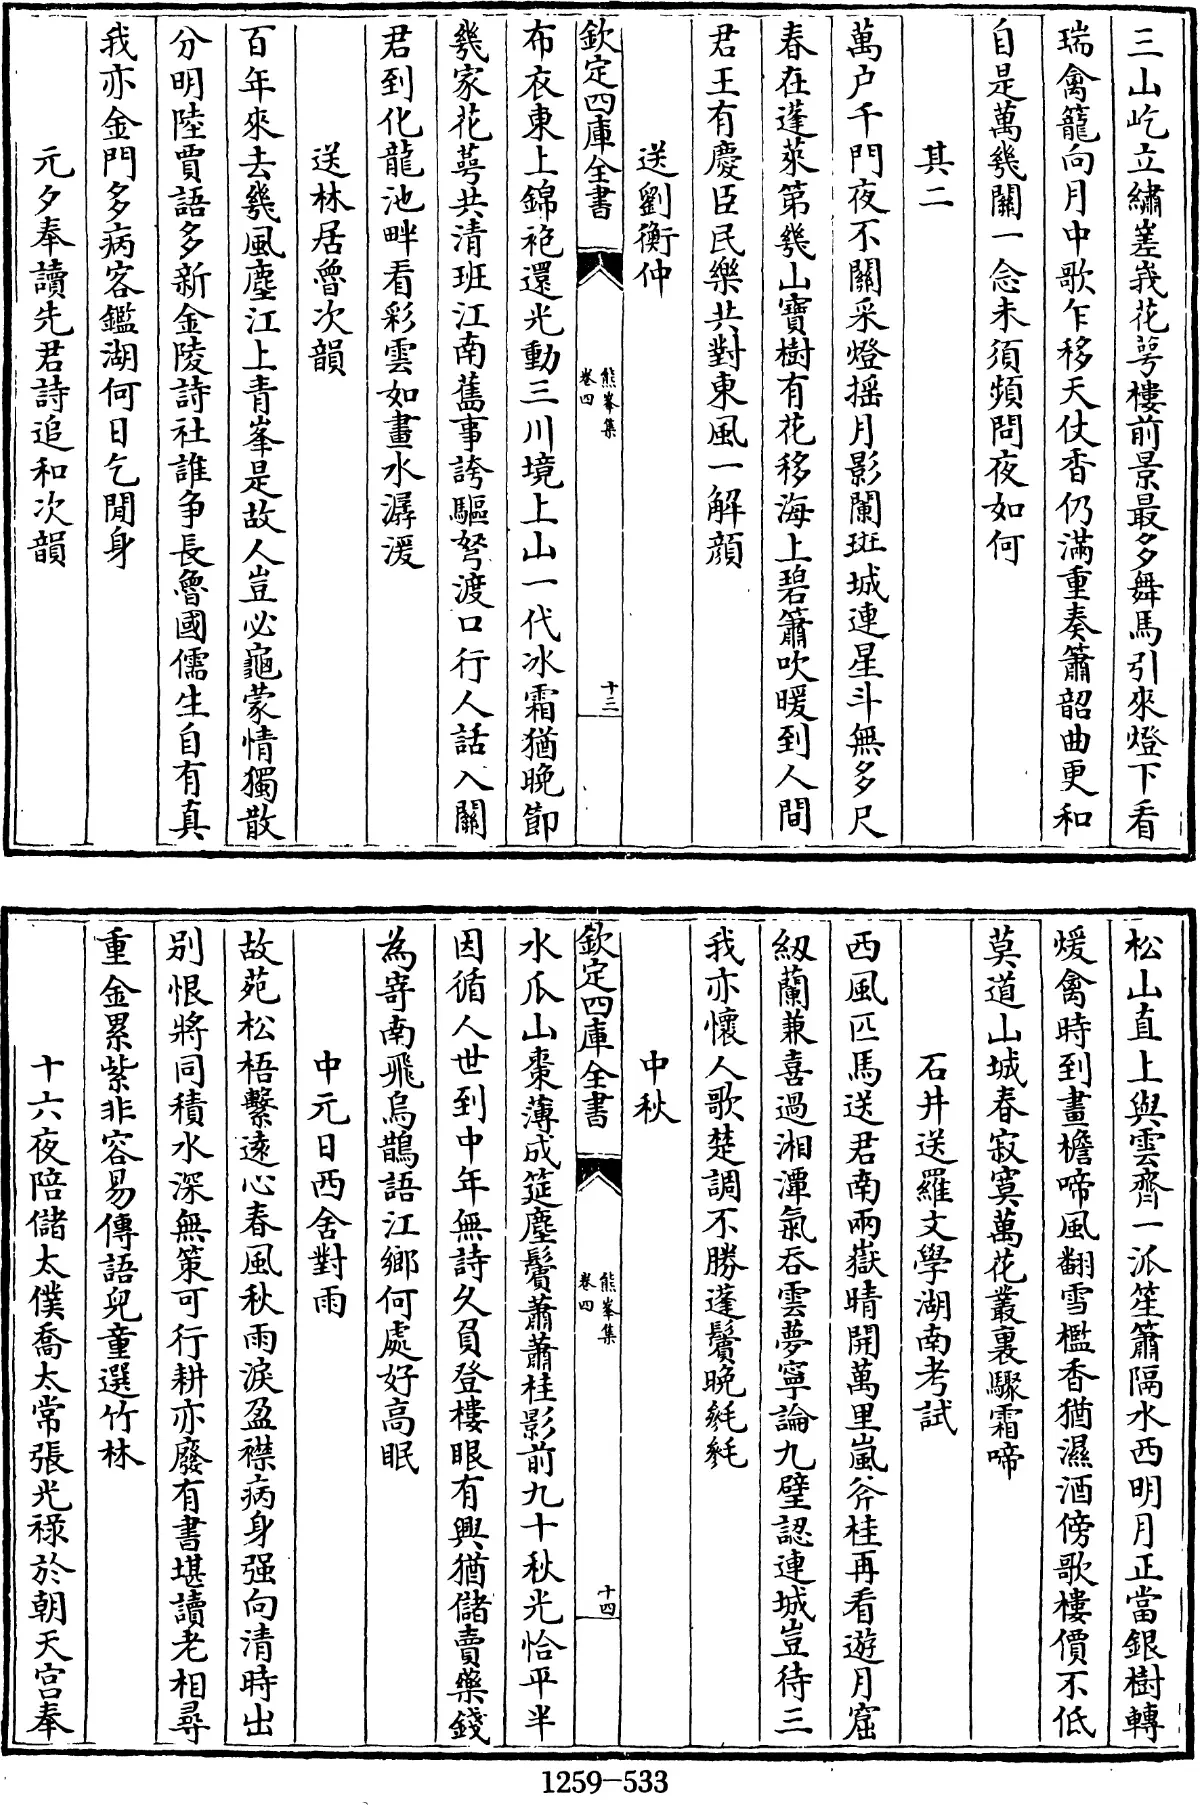 三山屹立繡嵳峩花萼樓前景最多舞馬引來燈下看
瑞禽籠向月中歌乍移天仗香仍滿重奏簫韶曲更和
自是萬幾關一念未須頻問夜如何
其二
萬户千門夜不關采燈摇月影闌斑城連星斗無多尺
春在蓬萊第幾山寶樹有花移海上碧簫吹暖到人間
君王有慶臣民樂共對東風一解顔
送劉衡仲
欽定四庫全書
熊峯集
卷四
十三
布衣東上錦袍還光動三川境上山一代冰霜猶晚節
幾家花萼共清班江南舊事誇驅弩渡口行人話入關
君到化龍池畔看彩雲如畫水潺湲
送林居魯次韻
百年來去幾風塵江上青峯是故人豈必龜蒙情獨散
分明陸賈語多新金陵詩社誰争長魯國儒生自有真
我亦金門多病客鑑湖何日乞閒身
元夕奉讀先君詩追和次韻
松山直上與雲齊一派笙簫隔水西明月正當銀樹轉
煖禽時到畫檐啼風翻雪檻香猶濕酒傍歌樓價不低
莫道山城春寂寞萬花叢裏驟霜啼
石井送羅文學湖南考試
西風匹馬送君南兩嶽晴開萬里嵐斧桂再看遊月窟
紉蘭兼喜過湘潭氣吞雲夢寧論九璧認連城豈待三
我亦懷人歌楚調不勝蓬鬢晚毿毿
中秋
欽定四庫全書
熊峯集
卷四
十四
水瓜山棗薄成筵塵鬢蕭蕭桂影前九十秋光恰平半
因循人世到中年無詩久負登樓眼有興猶儲賣藥錢
為寄南飛烏鵲語江鄉何處好高眠
中元日西舍對雨
故苑松梧繫遠心春風秋雨淚盈襟病身强向清時出
别恨將同積水深無策可行耕亦廢有書堪讀老相尋
重金累紫非容易傳語兒童選竹林
十六夜陪儲太僕喬太常張光禄於朝天宫奉
1259-533